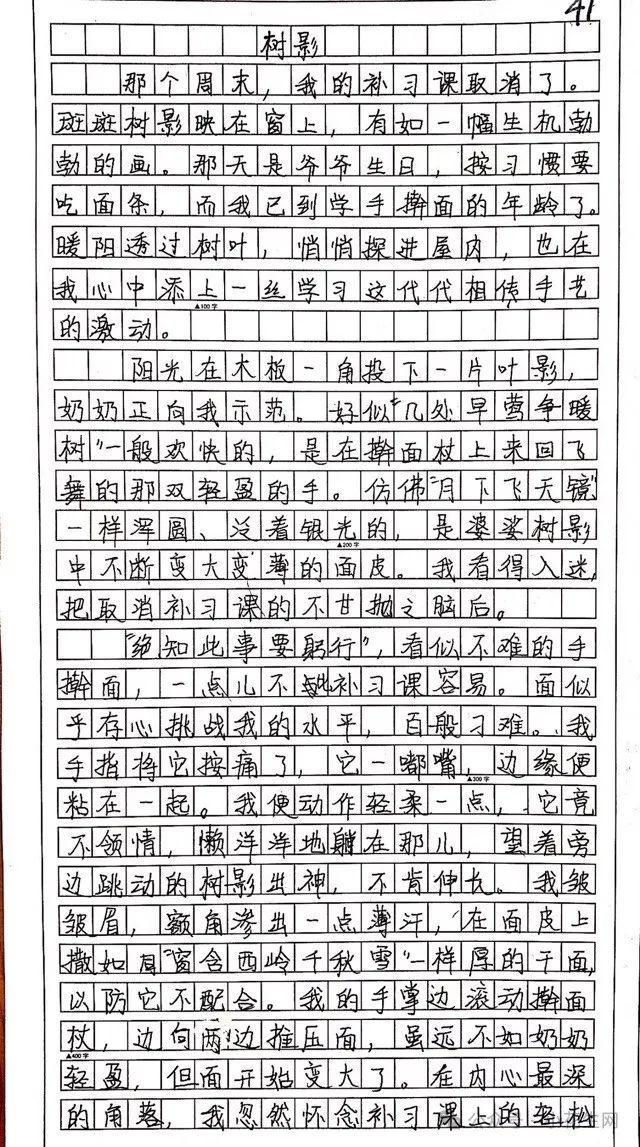 41
树影
那个周末，我的补习课取消了。
斑斑树影映在窗上，有如一幅生机勃
勃的画。那天是爷爷生日，按习惯要
吃面条，而我已到学手擀面的年龄了。
暖阳透过树叶，悄悄探进屋内，也在
我心中添上一丝学习这代代相传手艺
▲100字
的激动。
阳光在木板一角投下一片叶影，
奶奶正向我示范。好似“几处早莺争暖
树”一般欢快的，是在擀面杖上来回飞
舞的那双轻盈的手。仿佛“月下飞天镜”
一样浑圆、泛着银光的，是婆娑树影
▲200字
中不断变大变薄的面皮。我看得入迷，
把取消补习课的不甘抛之脑后。
“绝知此事要躬行”，看似不难的手
擀面，一点儿不比补习课容易。面似
乎存心挑战我的水平，百般刁难。我
手指将它按痛了，它一嘟嘴，边缘便
▲300字
粘在一起。我便动作轻柔一点，它竟
不领情，懒洋洋地躺在那儿，望着旁
边跳动的树影出神，不肯伸长。我皱
皱眉，额角渗出一点薄汗，在面皮上
撒如“窗含西岭千秋雪”一样厚的干面，
以防它不配合。我的手掌边滚动擀面
杖，边向两边推压面，虽远不如奶奶
▲400字
轻盈，但面开始变大了。在内心最深
的角落，我忽然怀念补习课上的轻松